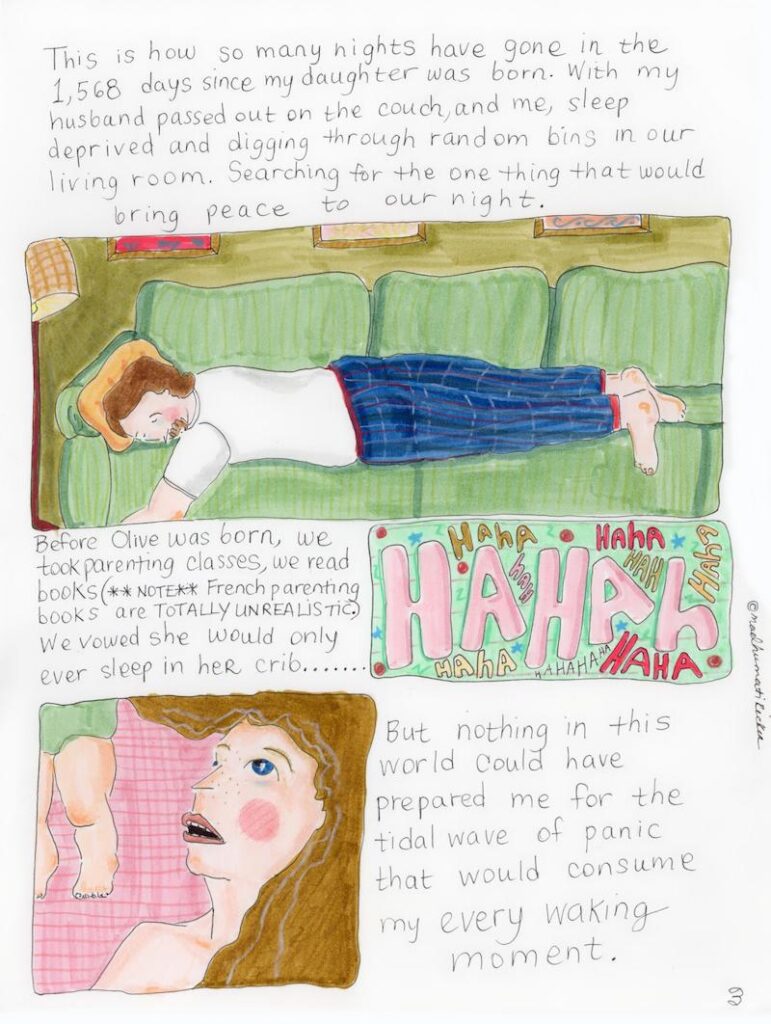 This is how so many nights have gone in the
1,568 days since my daughter was born. With my
husband passed out on the couch, and me, sleep
deprived and digging through random bins in our
living room. Searching for the one thing that would
bring peace to our night.
Before Olive was born, we
took parenting classes, we read
books (** NOTE** French parenting
books are TOTALLY UNREALISTIC)
We vowed she would only
ever sleep in her crib.......
HaHa
HAHa
HaHA
HAH
HaH
HAHAh
HAHA
HAHAHAHA
HAHA
But nothing in this
world could have
prepared me for the
tidal wave of panic
that would consume
my every waking
moment.
3